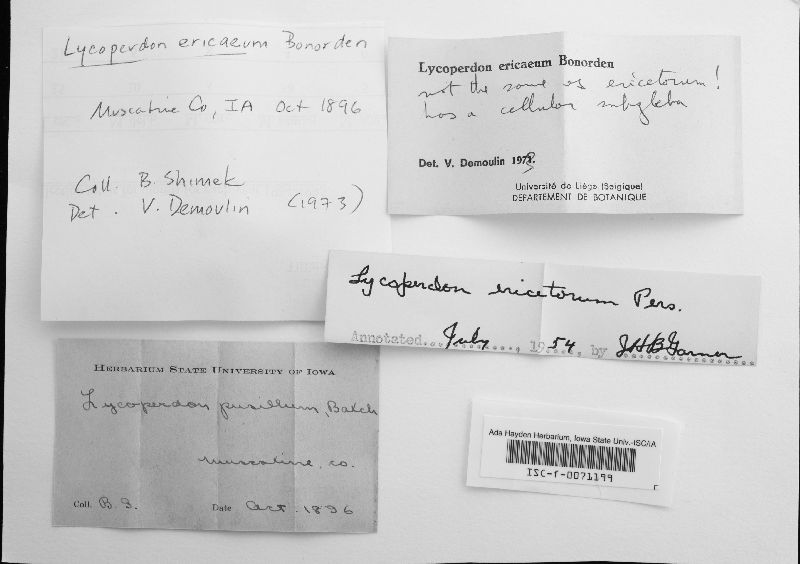 Lycoperdon ericaeum Bonorden
Muscatine Co, IA Oct 1896
Coll. B. Shimek
Det. V. Demoulin (1973)
Lycoperdon ericaeum Bonorden
not the same as ericetorum!
has a cellular subgleba
Det. V. Demoulin 1973.
Université de Liège (Belgique)
DEPARTEMENT DE BOTANIQUE
Lycoperdon ericetorum Pers.
Annotated...July..., 1954, by JHB Garner
HERBARIUM STATE UNIVERSITY OF IOWA
Lycoperdon pusillum, Batch
Muscatine, co.
Coll. B. S. Date Oct. 1896
Ada Hayden Herbarium, Iowa State Univ.-ISC/IA
ISC-f-0071199